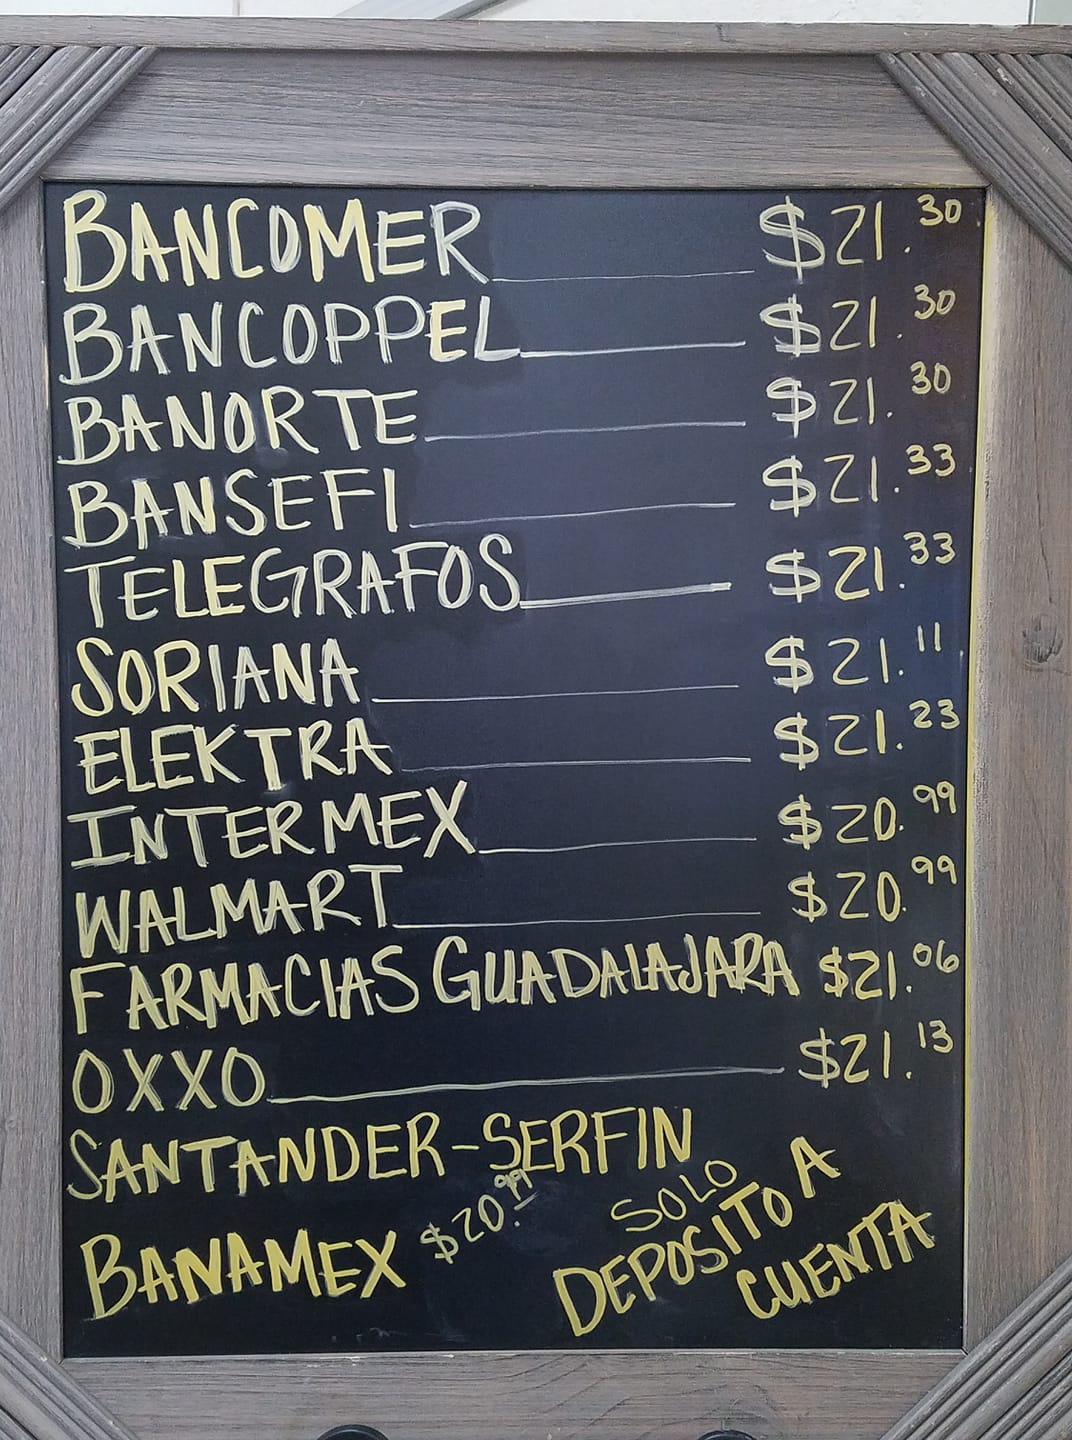 BANCOMER $21.30
BANCOPPEL $21.30
BANORTE $21.30
BANSEFI $21.33
TELEGRAFOS $21.33
SORIANA $21.11
ELEKTRA $21.23
INTERMEX $20.99
WALMART $20.99
FARMACIAS GUADALAJARA $21.06
OXXO $21.13
SANTANDER-SERFIN
BANAMEX $20.99
SOLO
DEPOSITO A
CUENTA